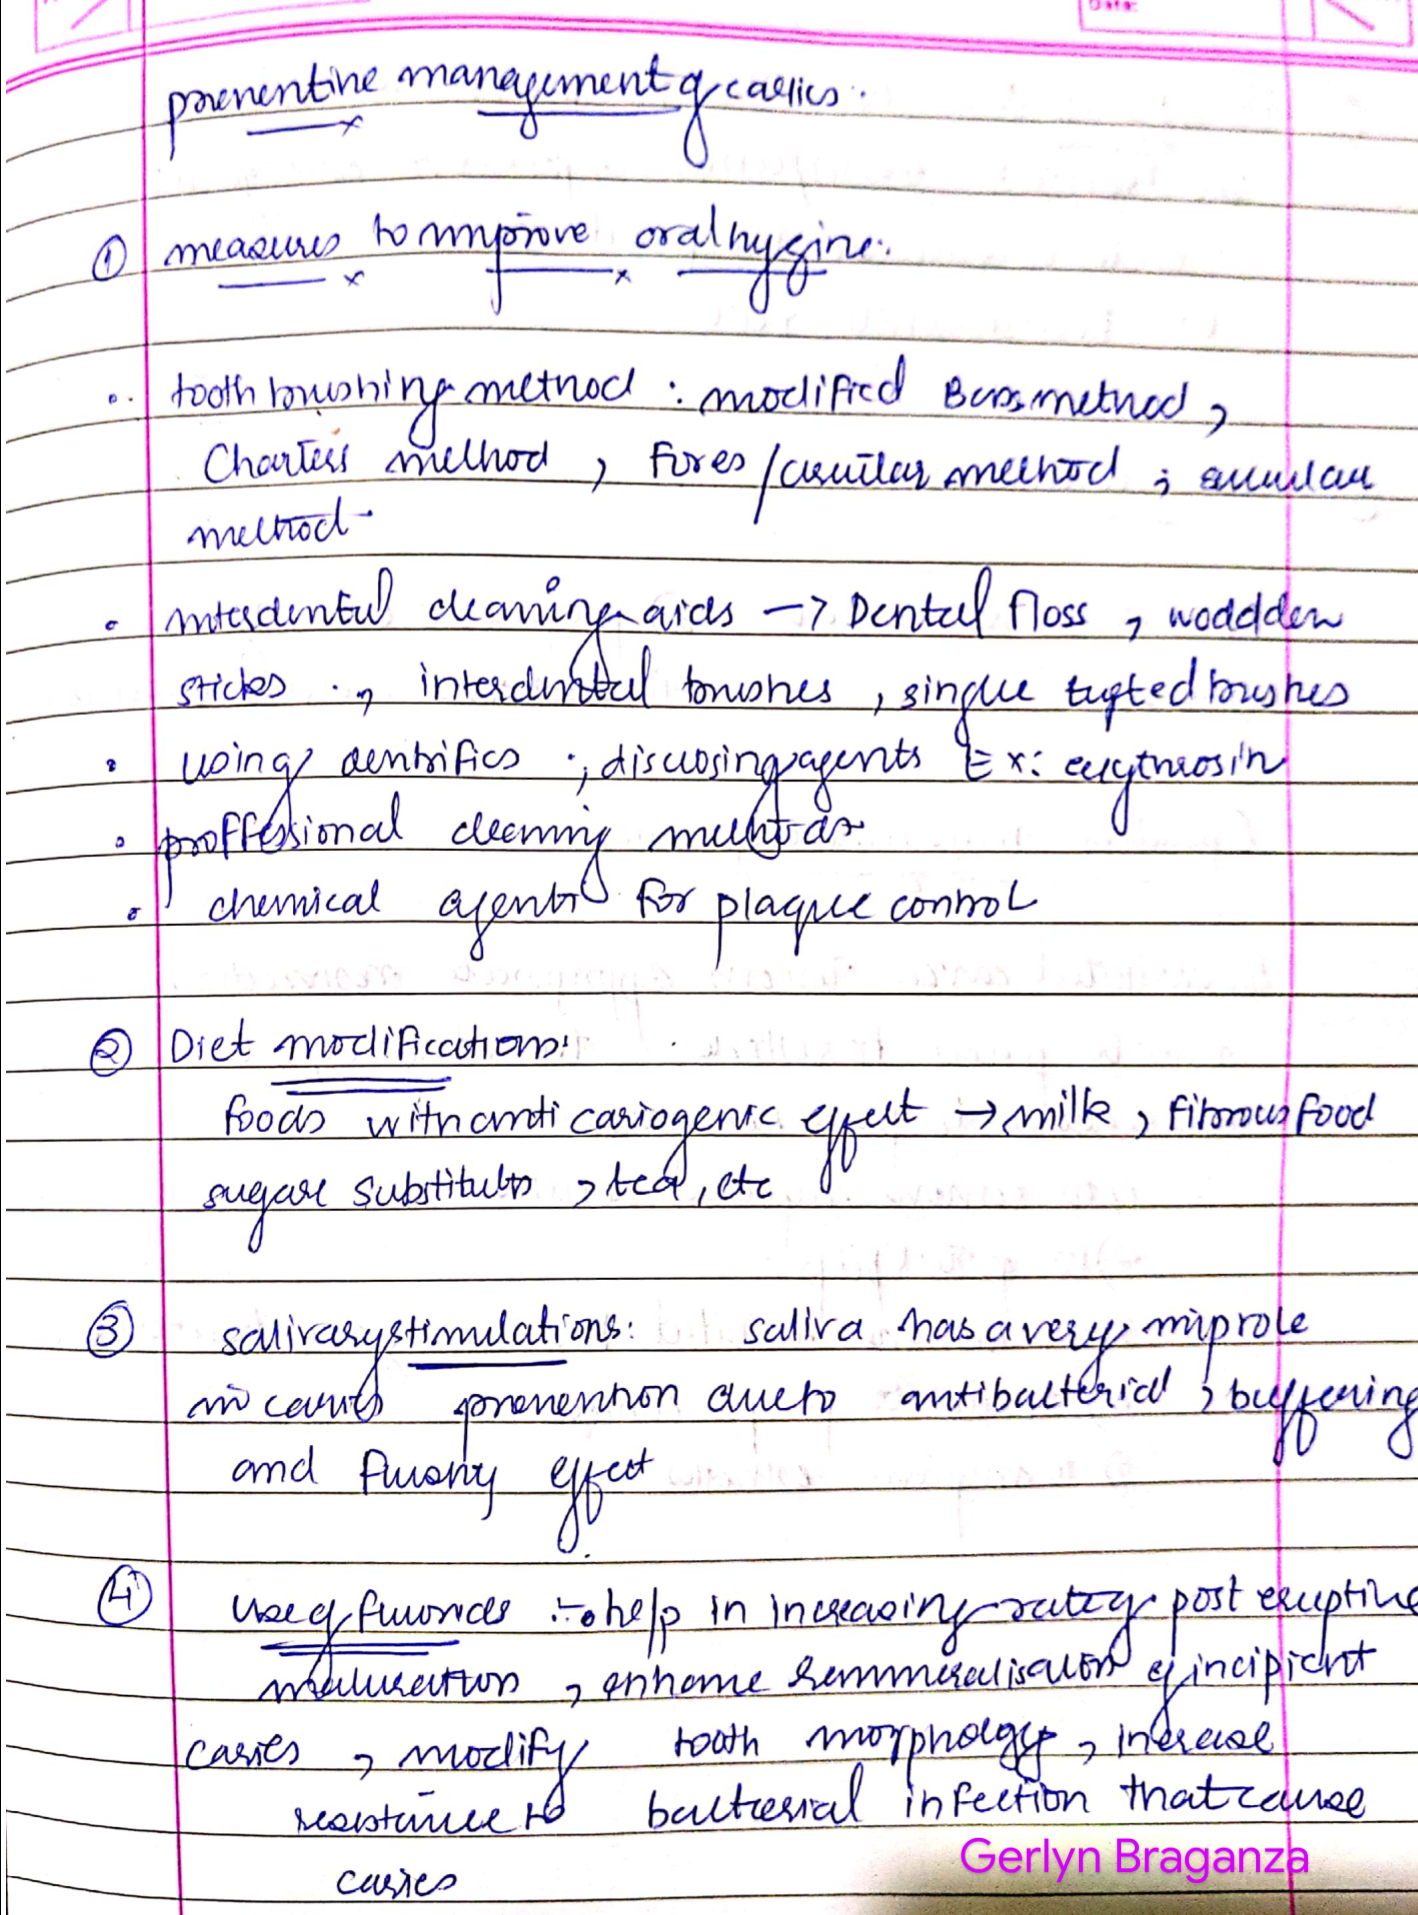 Date:
preventive management of caries.
① measures to improve oral hygine:
tooth brushing method : modified Bass method ,
Charters method , fones/circular method ;
method.
interdental cleaning aids → Dental floss , woddden
sticks , interdental brushes , single tufted brushes
using dentrifics ; disclosing agents Ex: erythrosin
proffessional cleaning methods
chemical agents for plaque control
② Diet modifications:
foods with anti cariogenic effect → milk , fibrous food
sugar substitutes , tea , etc
③ salivary stimulations: saliva has a very imp role
in caries prevention due to antibacterial , buffering
and flushing effect
④ Use of fluorides :→ help in increasing rate of post eruptive
maturation , enhance remineralisation of incipient
caries , modify tooth morphology , increase
resistance to bacterial infection that cause
caries
Gerlyn Braganza